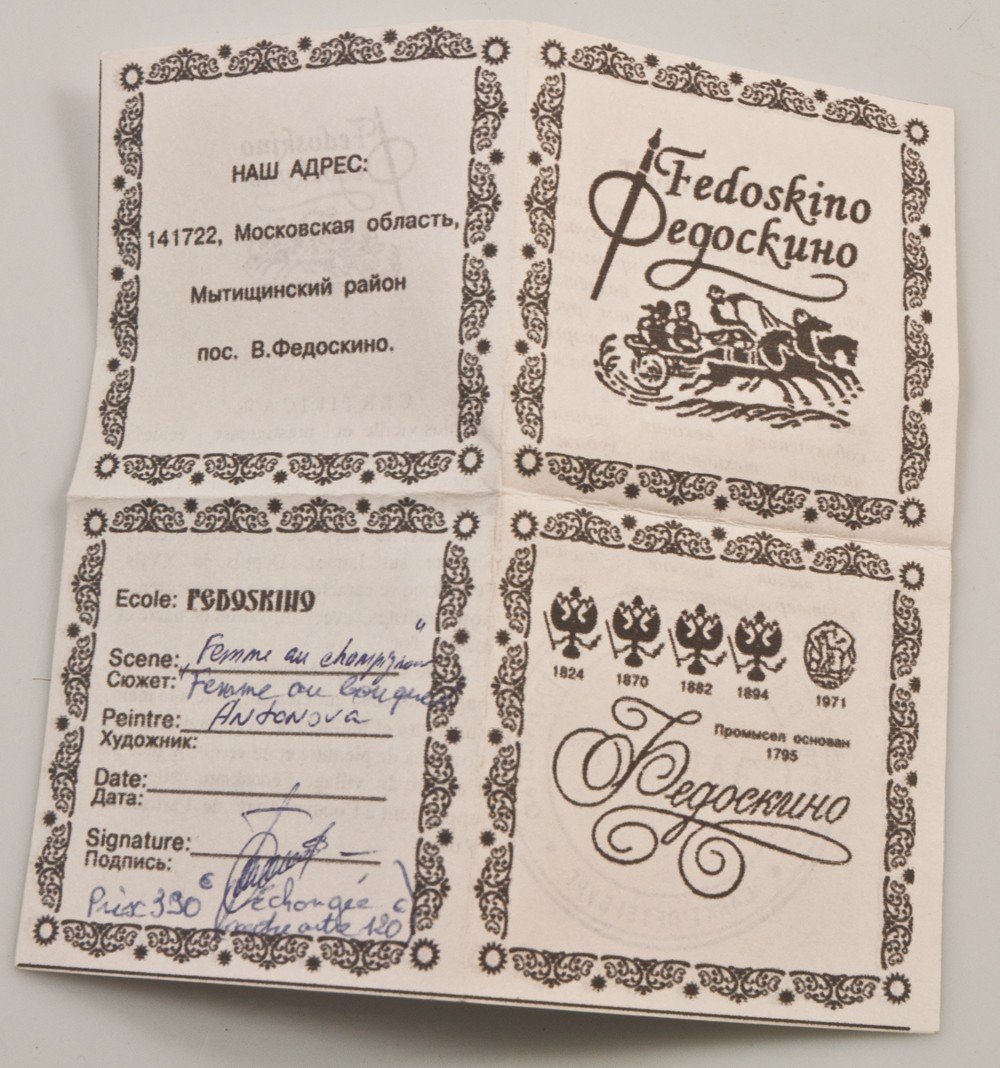 НАШ АДРЕС:
141722, Московская область,
Мытищинский район
пос. В.Федоскино.
Fedoskino
Федоскино
Ecole: FEDOSKINO
Scene: Femme au champignon"
Сюжет: "Femme au bouquet"
Peintre: Antonova
Художник:
Date:
Дата:
Signature:
Подпись:
Prix 390 €
(échangée
120 €)
1824 1870 1882 1894 1971
Промысел основан
1795
Федоскино